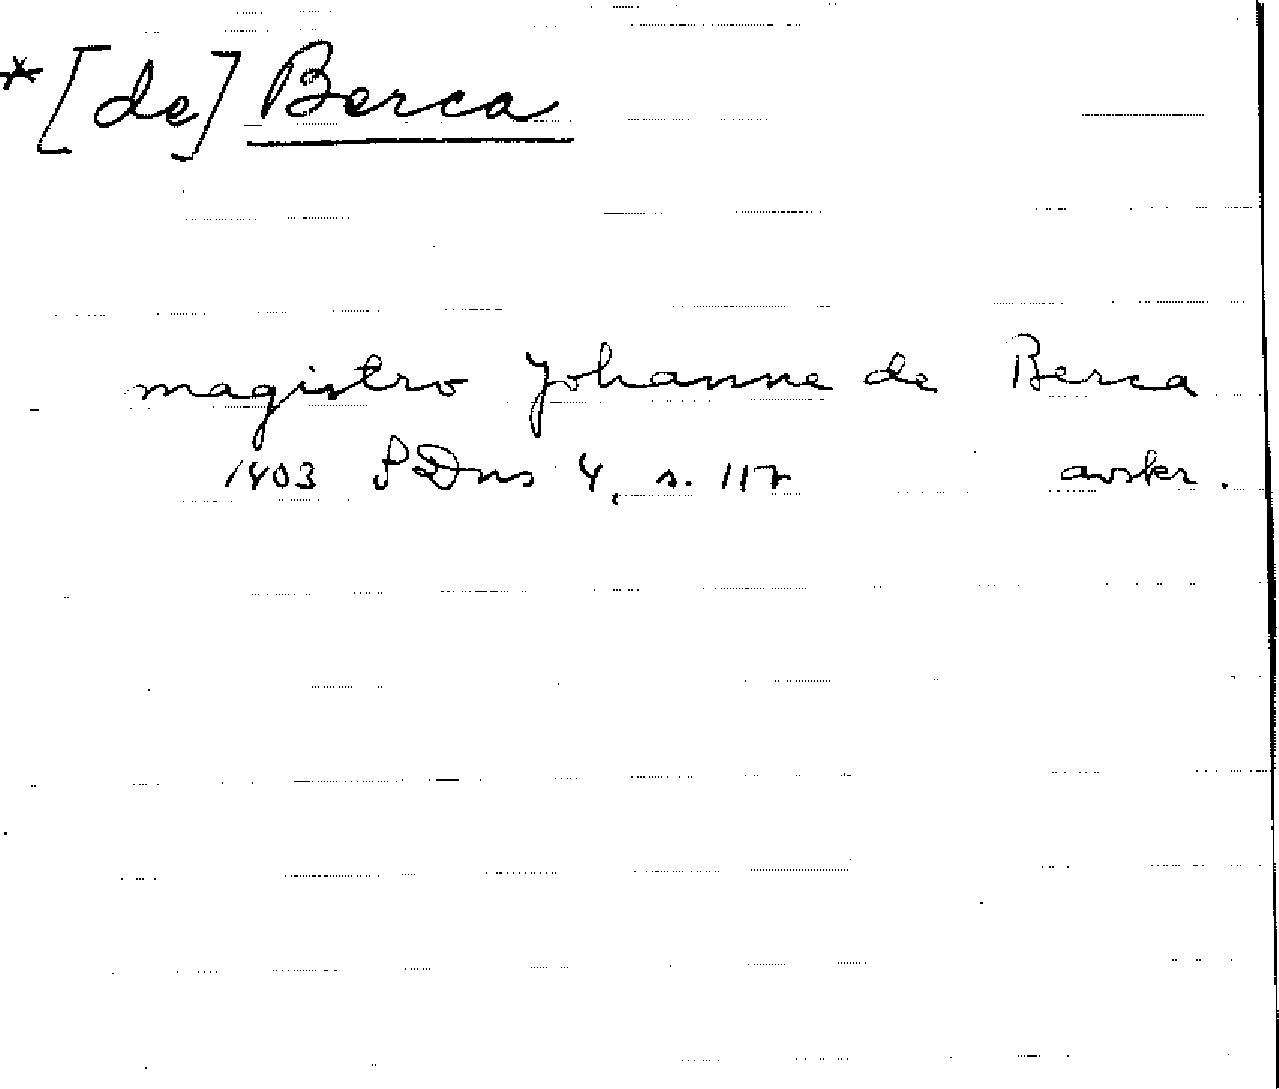 *[de] Berca
magistro Johanne de Berca
1403 SDns 4, s. 117 avskr.